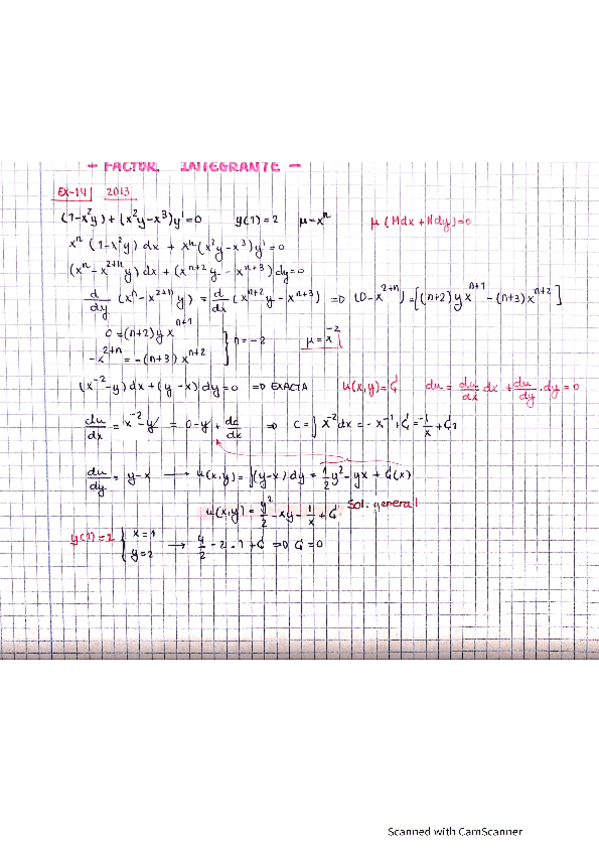 + FACTOR INTEGRANTE -
EX-14 | 2013
(1-x²y) + (x²y-x³)y' = 0 y(1) = 2 μ = xⁿ μ(Mdx + Ndy) = 0
xⁿ (1-x²y) dx + xⁿ (x²y-x³)y' = 0
(xⁿ - x²⁺ⁿy) dx + (xⁿ⁺²y - xⁿ⁺³) dy = 0
d/dy (xⁿ - x²⁺ⁿ y) = d/dx (xⁿ⁺²y - xⁿ⁺³) => (0 - x²⁺ⁿ) = [(n+2) y xⁿ⁺¹ - (n+3) xⁿ⁺²]
0 = (n+2) y xⁿ⁺¹
-x²⁺ⁿ = -(n+3) xⁿ⁺² } n = -2 μ = x⁻²
(x⁻² - y) dx + (y - x) dy = 0 => EXACTA u(x,y) = C du = du/dx dx + du/dy . dy = 0
du/dx = x⁻² - y = 0 - y + dc/dx => C = ∫ x⁻² dx = -x⁻¹ + C = -1/x + C₁
du/dy = y - x → u(x,y) = ∫(y-x) dy = 1/2 y² - yx + C(x)
u(x,y) = y²/2 - xy - 1/x + C Sol. general
y(1) = 2 { x = 1 y = 2 → 4/2 - 2 - 1 + C => C = 0
Scanned with CamScanner